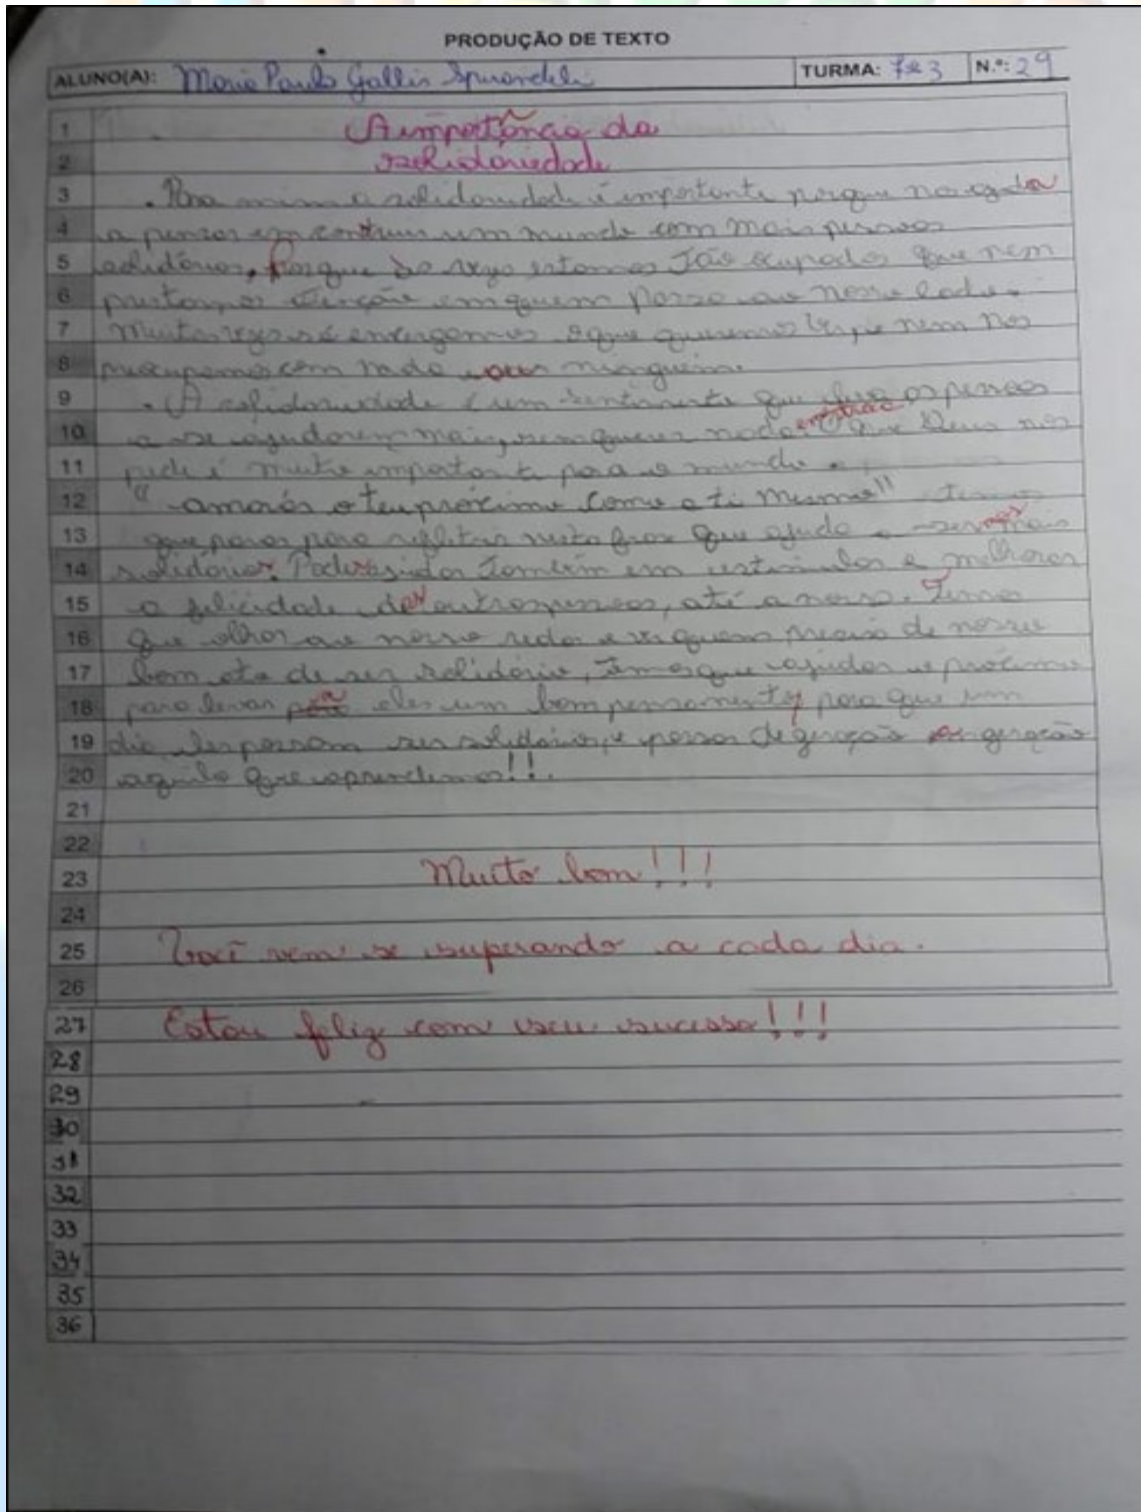 PRODUÇÃO DE TEXTO
ALUNO(A): Maria Paula Gallis Sperandeli TURMA: 7º 3 N.º: 29
1 A importância da
2 solidariedade
3 . Para mim a solidariedade é importante porque nos ajuda
4 a pensar em construir um mundo com mais pessoas
5 solidárias, porque às vezes estamos tão ocupados que nem
6 prestamos atenção em quem passa ao nosso lado.
7 Muitas vezes só enxergamos o que queremos ver, e nem nos
8 preocupamos com nada ou ninguém.
9 . A solidariedade é um sentimento que leva as pessoas
10 a se ajudarem mais, sem querer nada O que Deus nos
11 pede é muito importante para o mundo
12 "amarás o teu próximo como a ti mesmo" temos
13 que parar para refletir nesta frase que ajuda a mais
14 solidários. também em estimular e melhorar
15 a felicidade de outras pessoas, até a nossa. Temos
16 que olhar ao nosso redor e ver quem precisa de nosso
17 bom ato de ser solidário, temos que ajudar o próximo
18 para levar a eles um bom pensamento, para que um
19 dia eles possam ser solidários, e passar de geração em geração
20 aquilo que aprendemos!!.
21
22
23 Muito bom!!!
24
25 Você vem se superando a cada dia.
26
27 Estou feliz com seu sucesso!!!
28
29
30
31
32
33
34
35
36